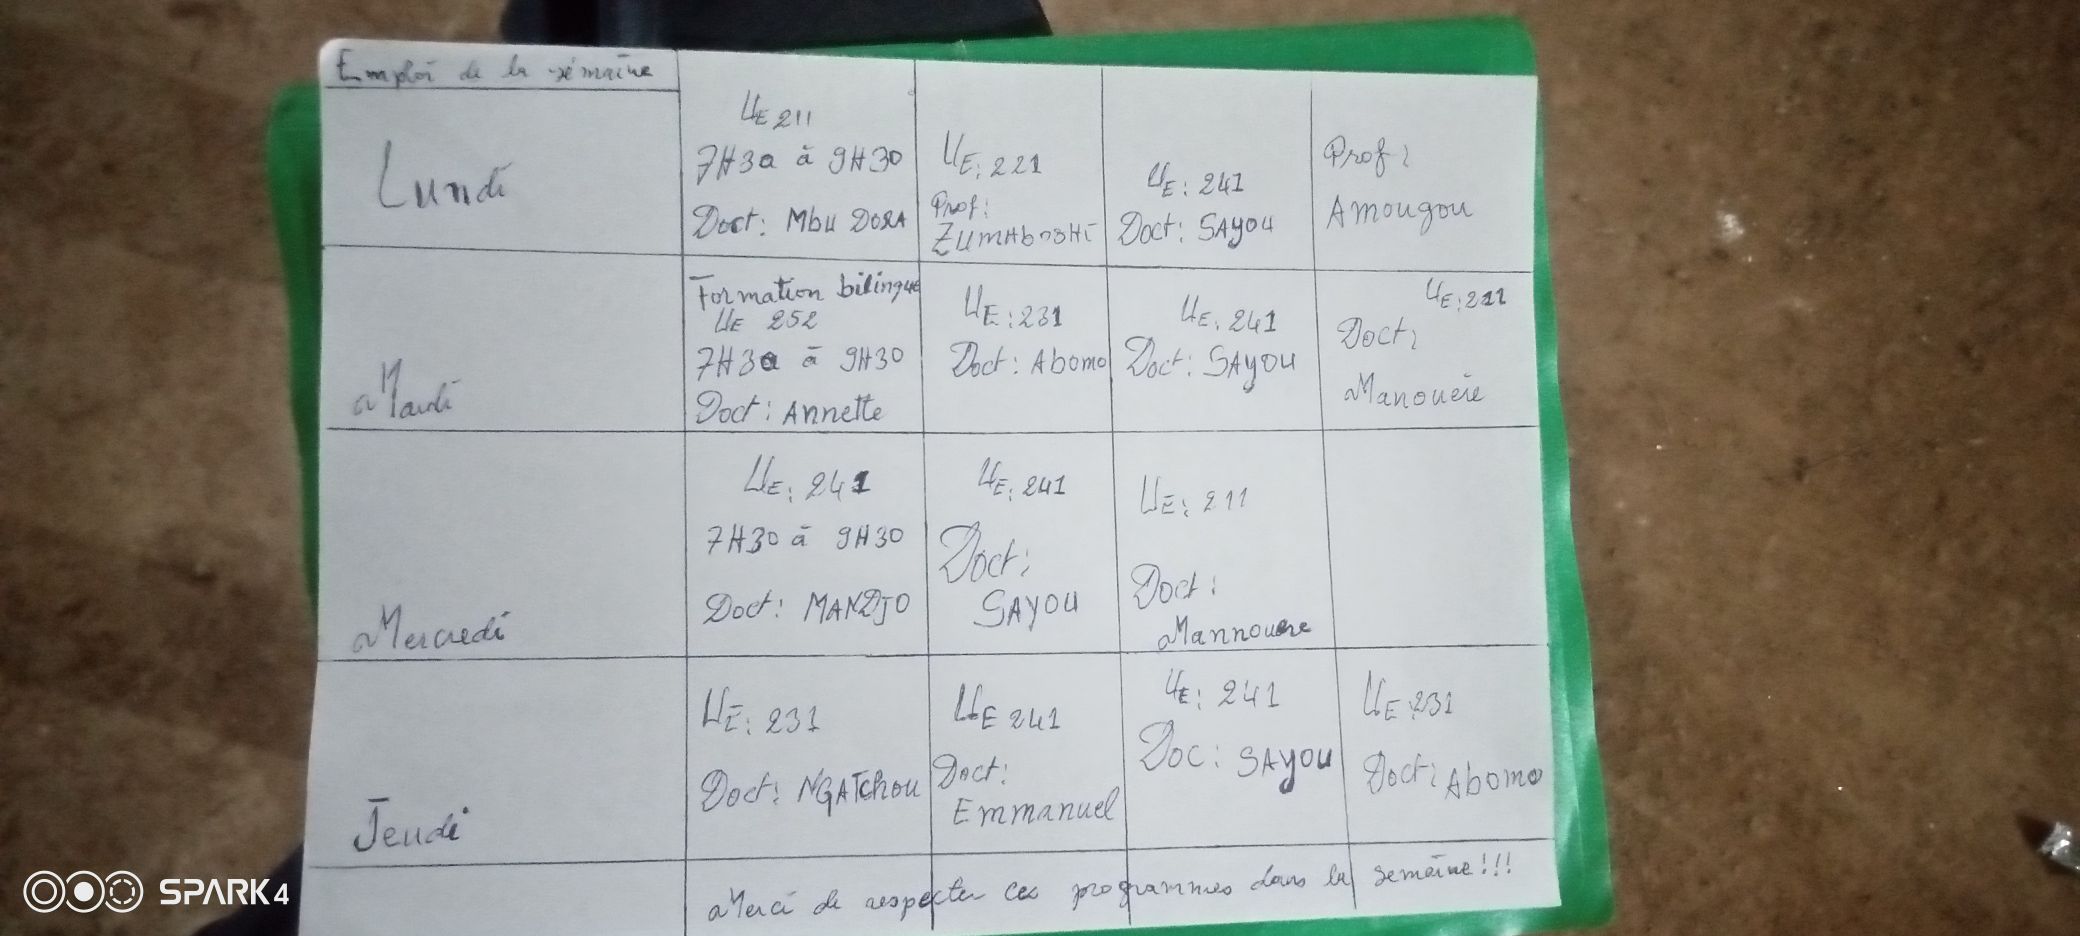 Emploi de la sémaine
Lundi
UE 211
7H30 à 9H30
Doct: Mbu DORA
UE: 221
Prof:
UE: 241
Doct: SAyou
Prof:
Amougou
Mardi
Formation bilingue
UE 252
7H30 à 9H30
Doct: Annette
UE: 231
Doct: Abomo
UE: 241
Doct: SAyou
UE: 211
Doct:
Manouère
Mercredi
UE: 241
7H30 à 9H30
Doct: MANDJO
UE: 241
Doct:
SAYOU
UE: 211
Doct:
Mannouere
Jeudi
UE: 231
Doct: NGATchou
UE 241
Doct:
Emmanuel
UE: 241
Doc: SAyou
UE: 231
Doct: Abomo
Merci de respecter ces programmes dans la semaine!!!
SPARK 4